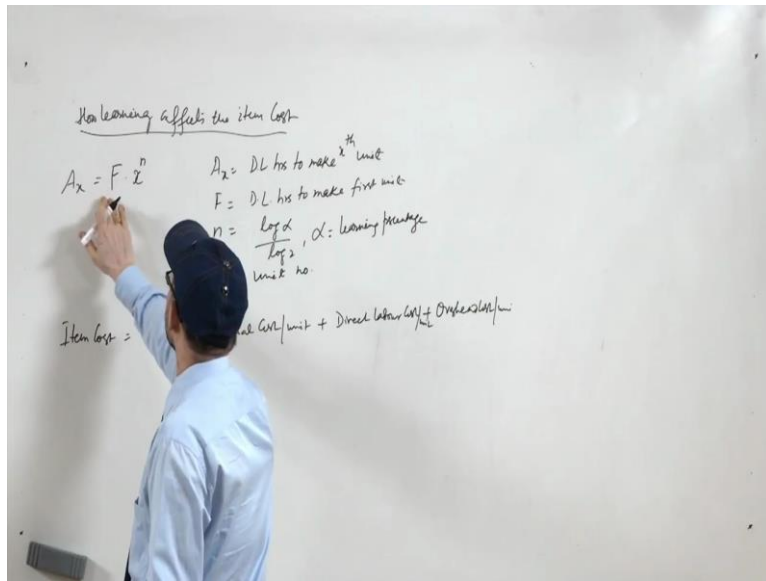 How learning affects the item Cost
Aₓ = F · xⁿ
Aₓ = DL hrs to make xᵗʰ unit
F = D.L. hrs to make first unit
n = log α / log 2 , α = learning percentage
unit no.
Item Cost = al Cost/unit + Direct labour Cost/unit + Overhead Cost/uni